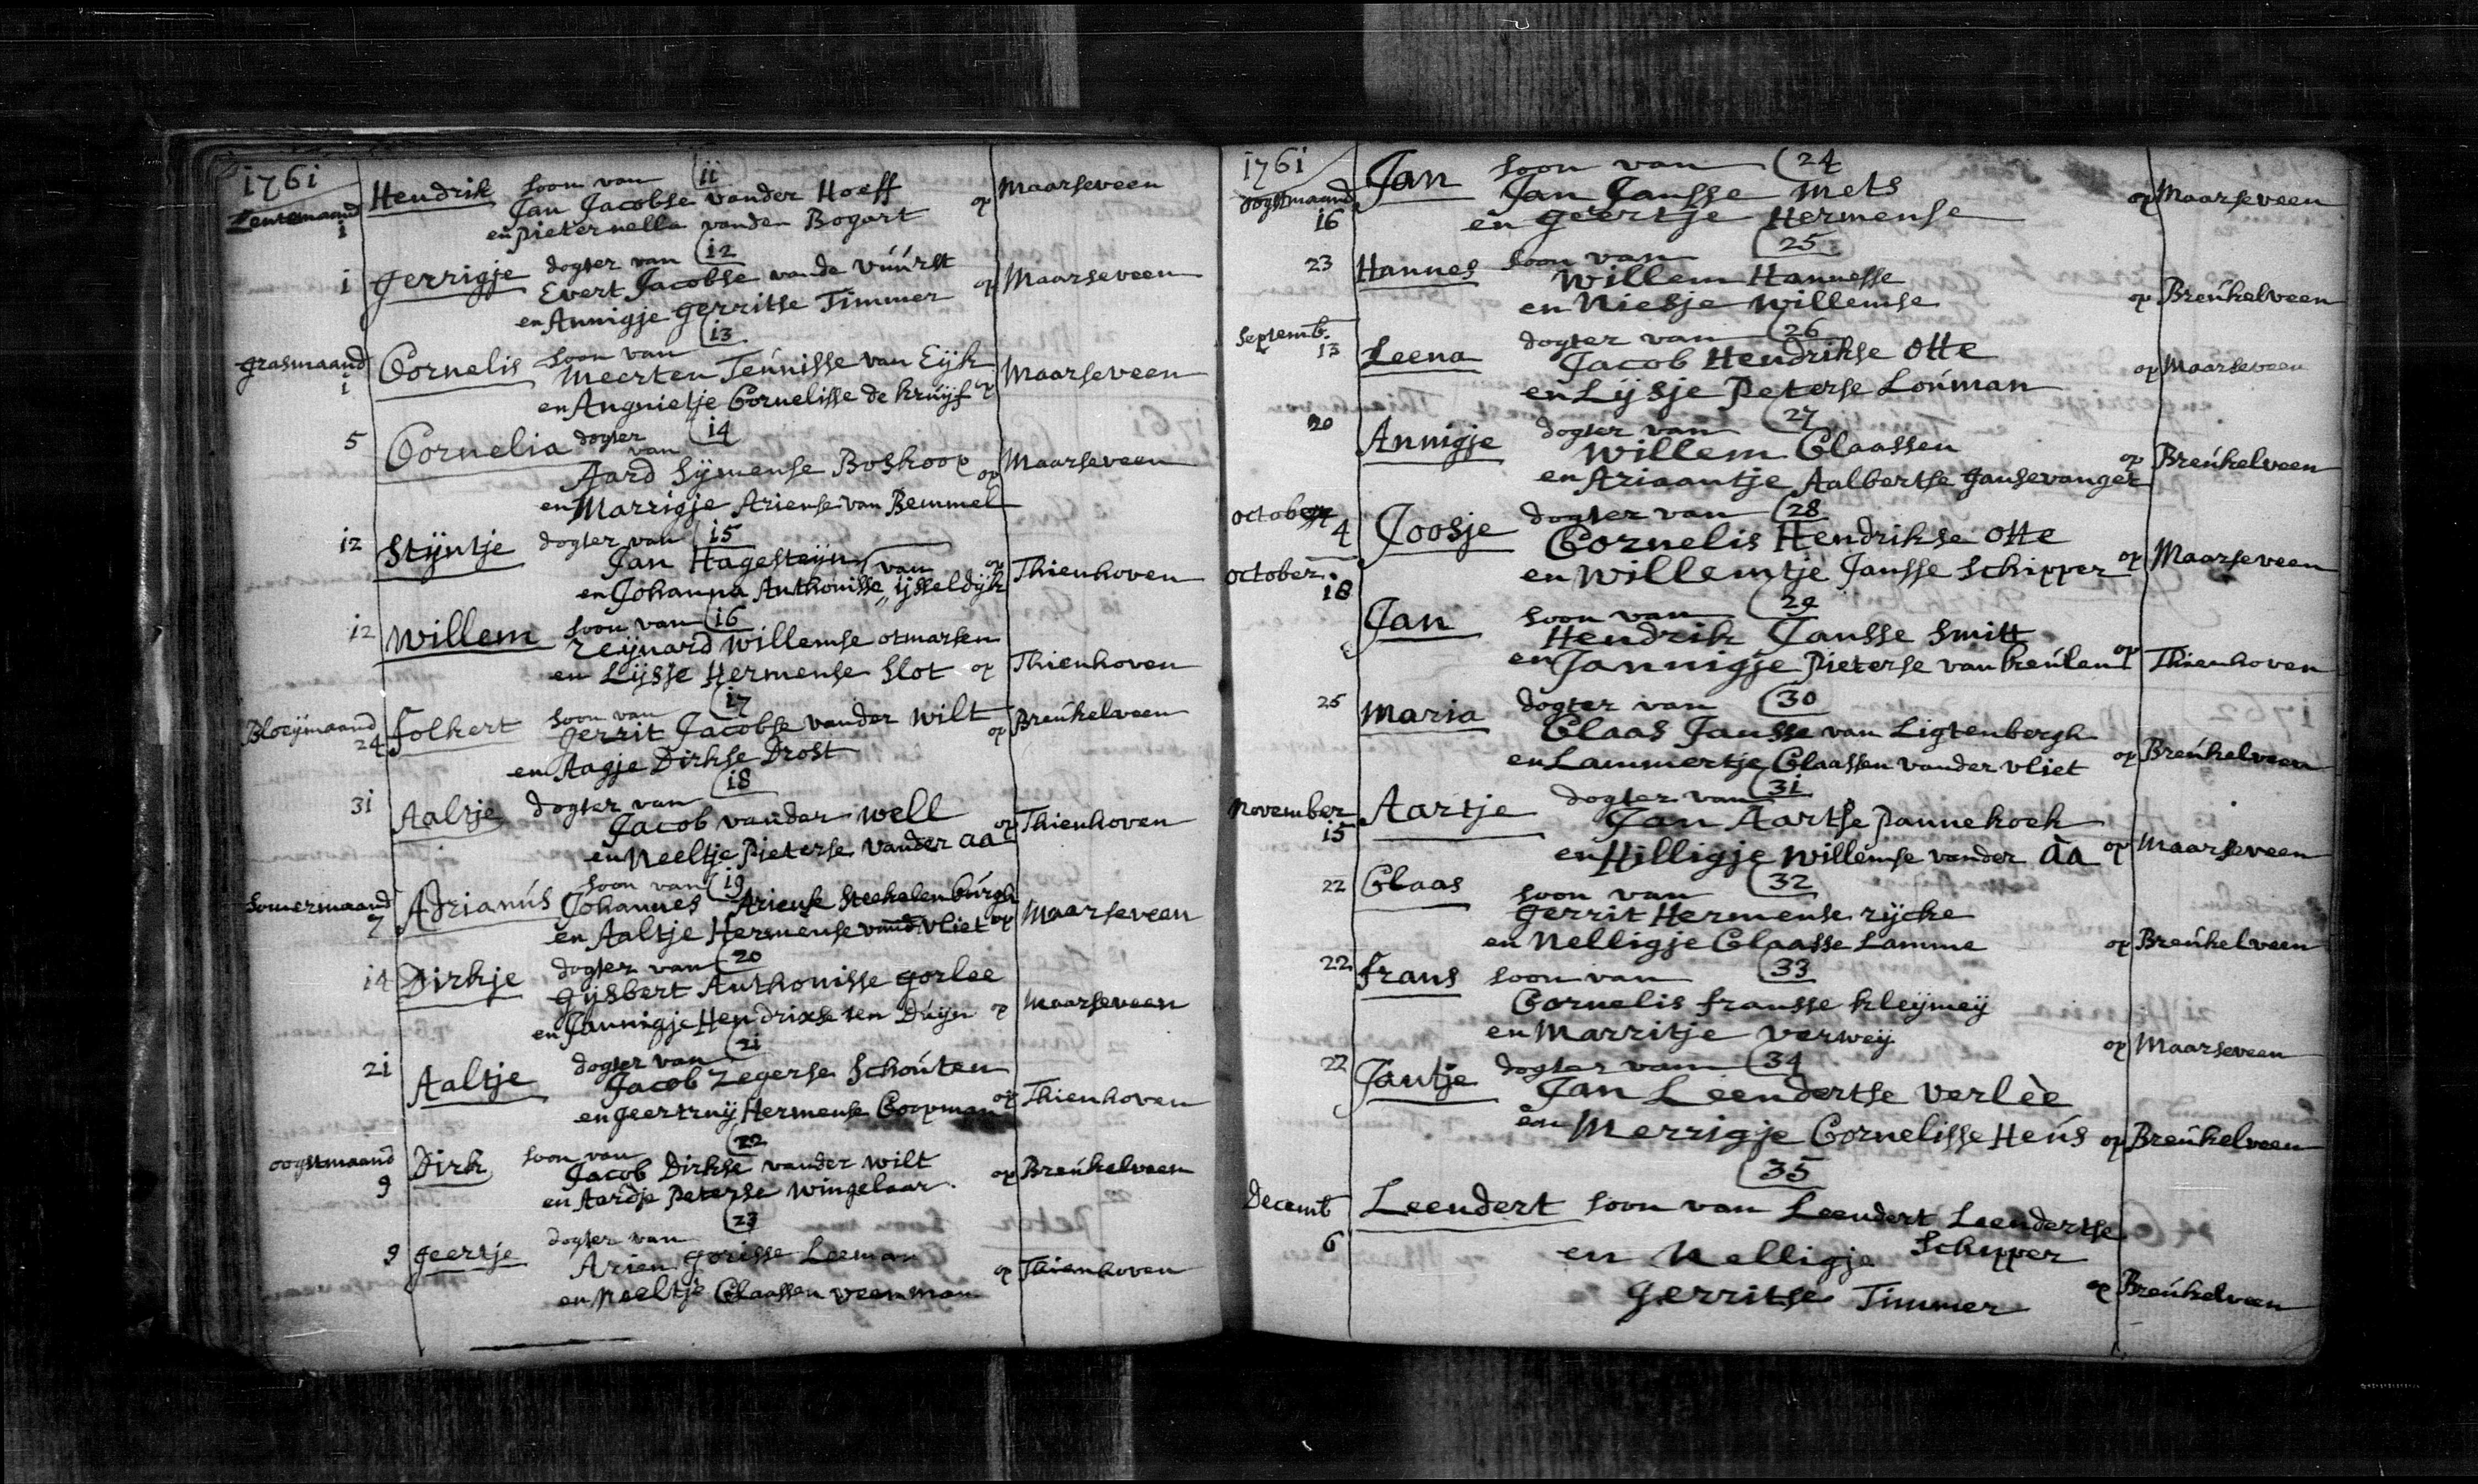 1761
Lentemaand
1
Hendrik soon van 11
Jan Jacobse vander Hoeff
en pieternella vanden Bogart op Maarseveen
1 gerrigje dogter van 12
Evert Jacobse vande vúúrst
en Annigje gerritse Timmer op Maarseveen
grasmaand
1
Cornelis soon van 13
Meerten Teúnisse van Eijk
en Angnietje Cornelisse de kruijf op Maarseveen
5 Cornelia dogter van 14
Aard Sijmense Boskoop
en Marrigje Ariense van Bemmel op Maarseveen
12 Stijntje dogter van 15
Jan Hagesteijn
en Johanna Anthonisse van ijsseldijk op Thienhoven
12 Willem soon van 16
Reijnard Willemse otmarsen
en Lijsje Hermense Slot op Thienhoven
Bloeijmaand
24
folkert soon van 17
gerrit Jacobse vander Wilt
en Aagje Dirkse Drost op Breúkelveen
31 Aaltje dogter van 18
Jacob vander well
en Neeltje Pieterse vander aa op Thienhoven
Somermaand
7
Adrianús soon van 19
Johannes Ariense Steekelenbúrgh
en Aaltje Hermense vand vliet op Maarseveen
14 Dirkje dogter van 20
gijsbert Anthonisse gorlee
en Jannigje Hendrixse ten Dúijn op Maarseveen
21 Aaltje dogter van 21
Jacob Zegerse Schoúten
en geertruij Hermense Coopman op Thienhoven
oogstmaand
9
Dirk soon van 22
Jacob Dirkse vander wilt
en Aardje Peterse wingelaar op Breúkelveen
9 geertje dogter van 23
Arien gorisse Leeman
en Neeltje Claassen veenman op Thienhoven
1761
oogstmaand
16
Jan soon van 24
Jan Jansse Mets
en geertje Hermense op Maarseveen
23 Hannes soon van 25
Willem Hannesse
en Niesje willemse op Breúkelveen
Septemb.
13
Leena dogter van 26
Jacob Hendrikse Otte
en Lijsje Peterse Loúman op Maarseveen
20 Annigje dogter van 27
Willem Claassen
en Ariaantje Aalbertse ganservanger op Breúkelveen
october
4
Joosje dogter van 28
Cornelis Hendrikse Otte
en Willemtje Jansse Schipper op Maarseveen
october.
18
Jan soon van 29
Hendrik Jansse Smitt
en Jannigje Pieterse van keúlen op Thienhoven
25 Maria dogter van 30
Claas Jansse van Ligtenbergh
en Lammertje Claassen vander vliet op Breúkelveen
November
15
Aartje dogter van 31
Jan Aartse Pannekoek
en Hilligje Willemse vander aa op Maarseveen
22 Claas soon van 32
gerrit Hermense rijcke
en Nelligje Claasse Lamme op Breúkelveen
22 frans soon van 33
Cornelis fransse kleijmeij
en Marritje verweij op Maarseveen
22 Jantje dogter van 34
Jan Leendertse verlee
en Merrigje Cornelisse Heús op Breúkelveen
35
Decemb
6
Leendert soon van Leendert Leendertse
Schipper
en Nelligje
gerritse Timmer op Breúkelveen